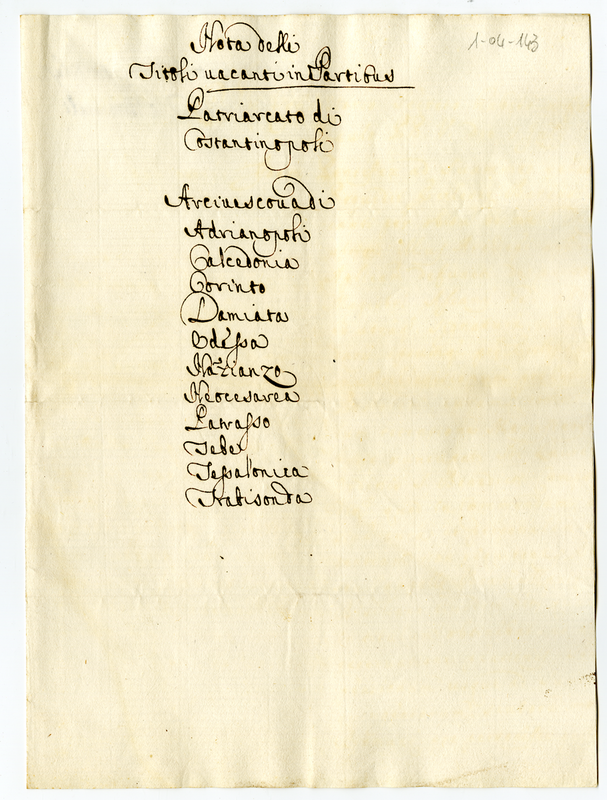 1-04-143
Nota delli
Titoli uacanti in Partibus
Patriarcato di
Costantinopoli
Arciuescouadi
Adrianopoli
Calcedonia
Corinto
Damiata
Edessa
Nazianzo
Neocesarea
Patrasso
Tebe
Tessalonica
Trabisonda